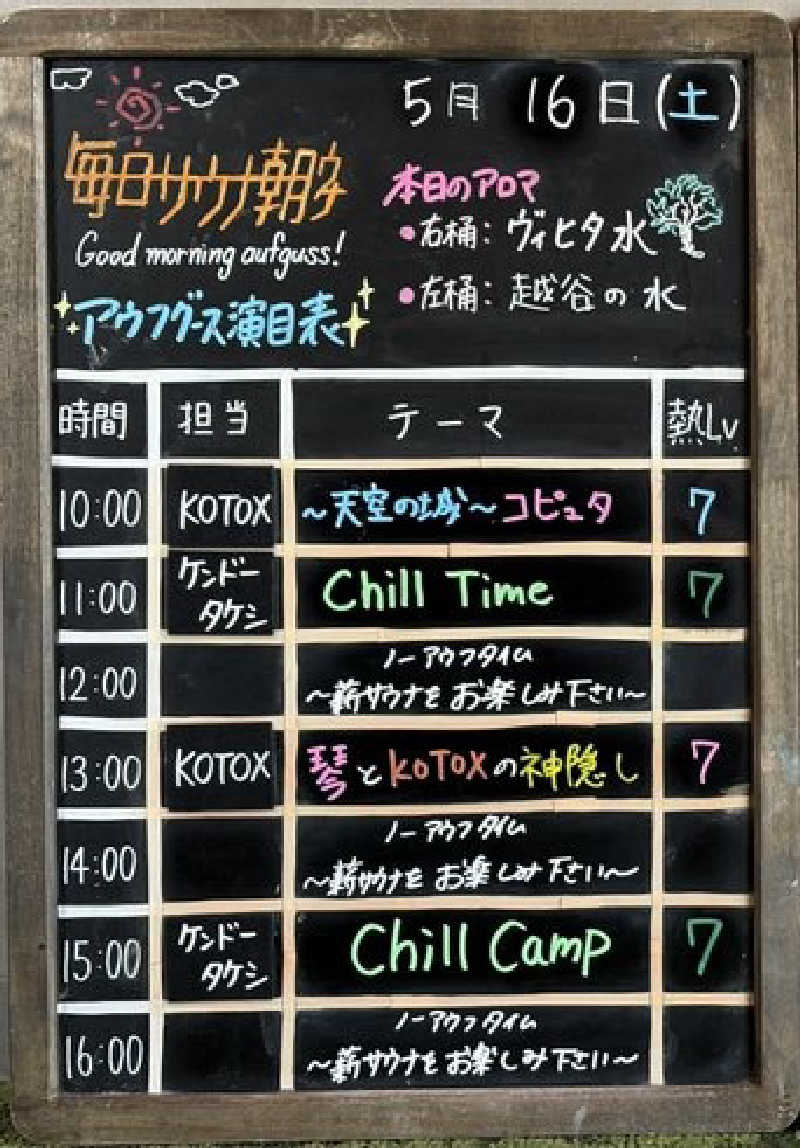 5月 16日(土)
毎日サウナ朝分
Good morning aufguss!
アウフグース演目表
本日のアロマ
・右桶：ヴィヒタ水
・左桶：越谷の水
時間 担当 テーマ 熱Lv
10:00 KOTOX ～天空の城～コピュタ 7
11:00 ケンドータケシ Chill Time 7
12:00 ノーアウフタイム
～薪サウナをお楽しみ下さい～
13:00 KOTOX 琴とKOTOXの神隠し 7
14:00 ノーアウフタイム
～薪サウナをお楽しみ下さい～
15:00 ケンドータケシ Chill Camp 7
16:00 ノーアウフタイム
～薪サウナをお楽しみ下さい～